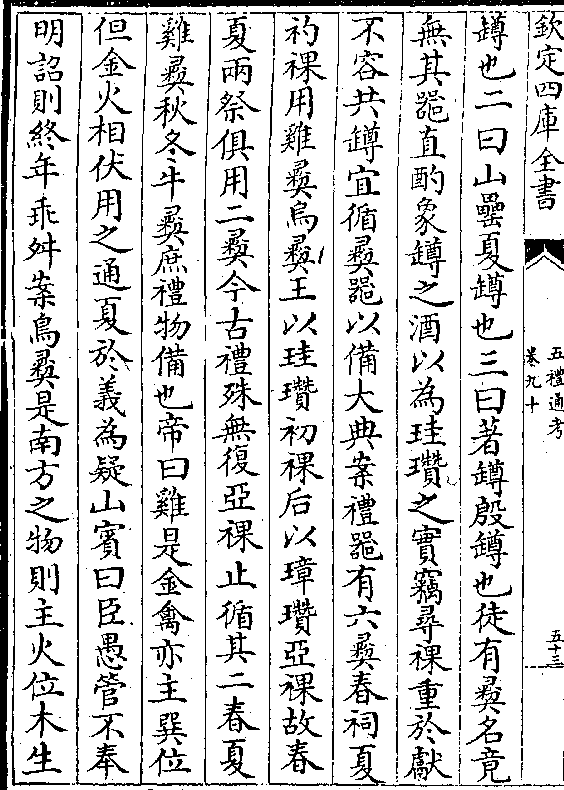 欽定四庫全書
五禮通考
卷九十
五十三
罇也二曰山罍夏罇也三曰著罇殷罇也徒有彞名竟
無其噐直酌象罇之酒以為珪瓚之實竊尋祼重於獻
不容共罇宜循彞噐以備大典案禮噐有六彞春祠夏
礿祼用雞彞鳥彞王以珪瓚初祼后以璋瓚亞祼故春
夏兩祭俱用二彞今古禮殊無復亞祼止循其二春夏
雞彞秋冬牛彞庶禮物備也帝曰雞是金禽亦主巽位
但金火相伏用之通夏於義為疑山賓曰臣愚管不奉
明詔則終年乖舛案鳥彞是南方之物則主火位木生